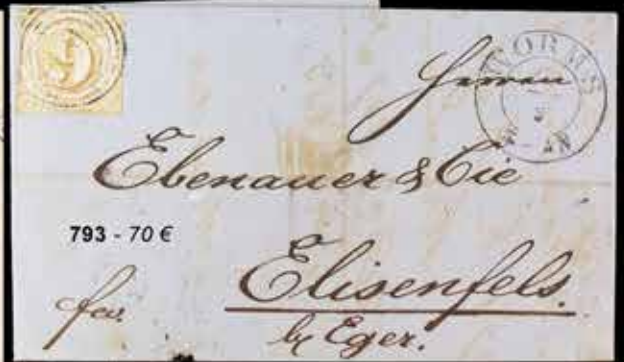 WORMS
Herren
Ebenauer & Cie
793 - 70 €
Elisenfels.
fco.
by Eger.